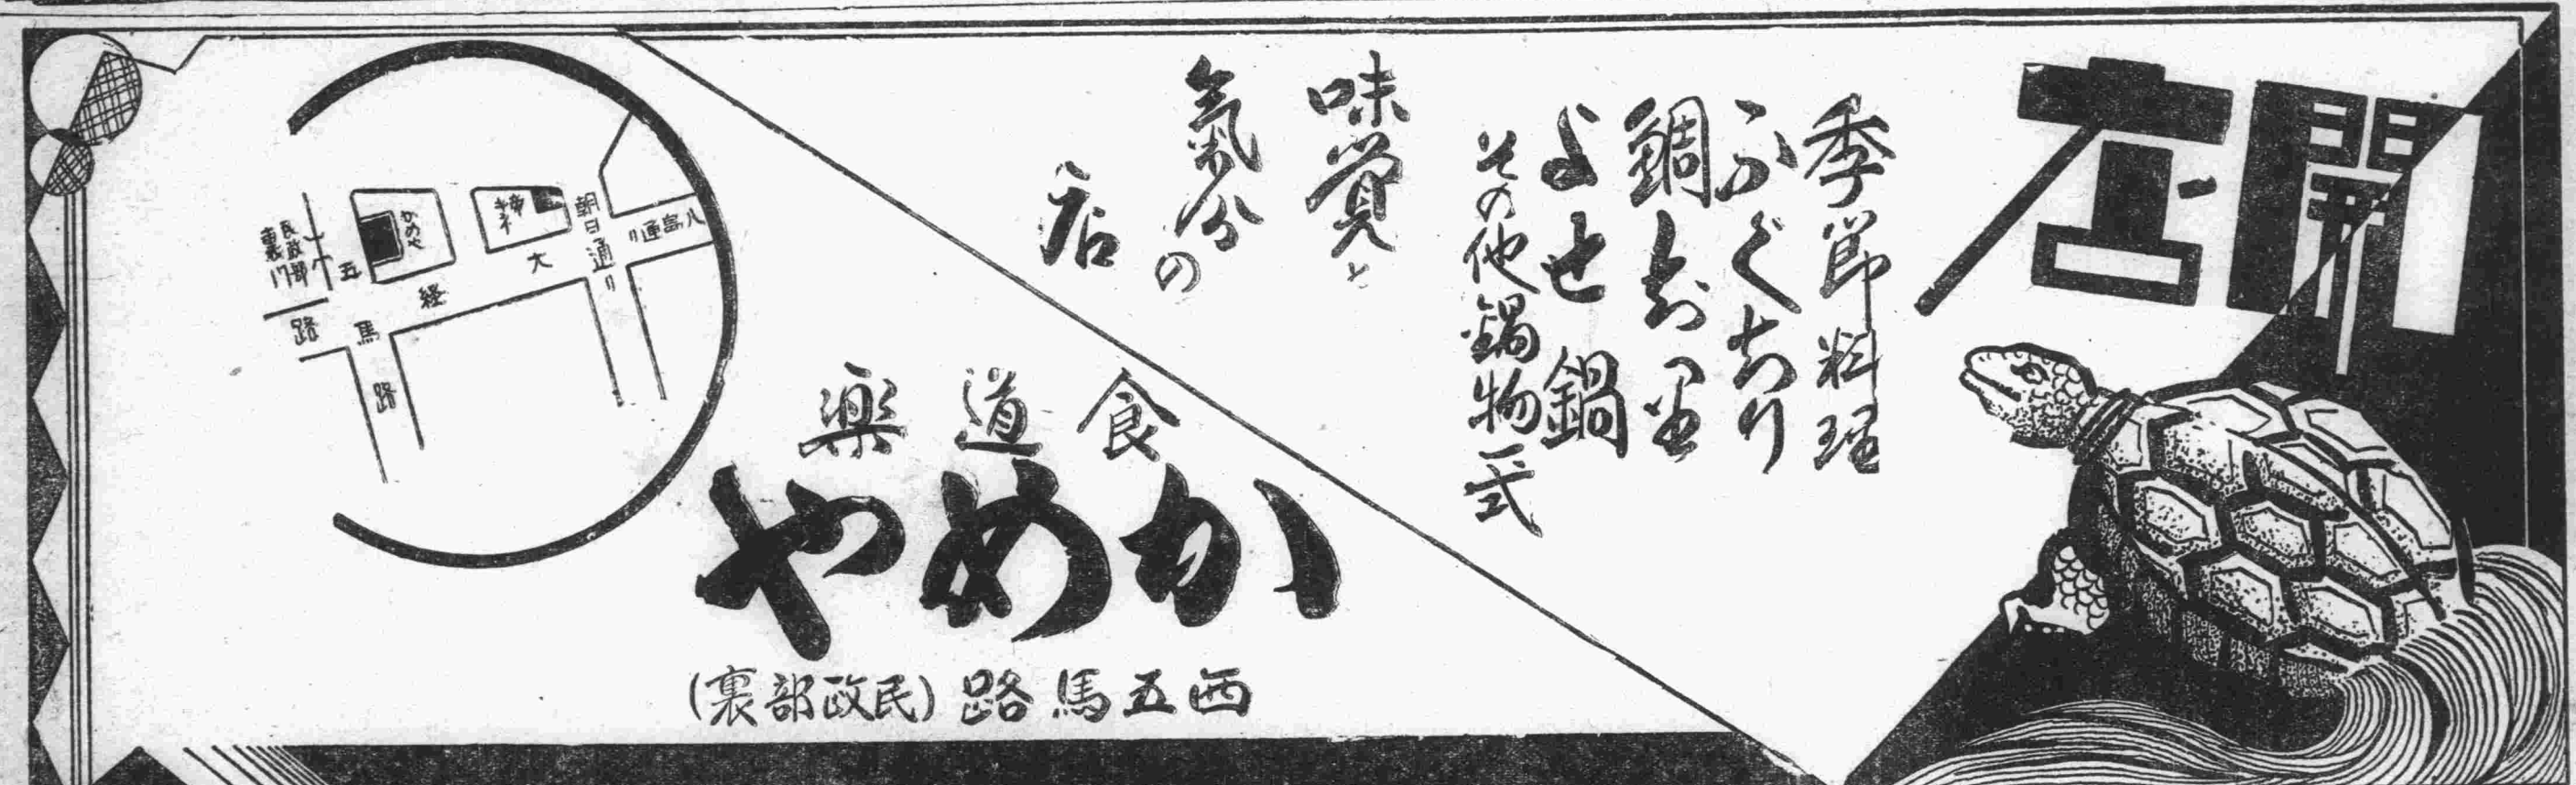 開店
季節料理
ふぐちり
鯛ちり
よせ鍋
その他鍋物一式
味覚と
氣分の
店
食道楽
かめや
西五馬路(民政部裏)
八島通り
朝日通り
大経路
五馬路
かめや
民政部
東裏門